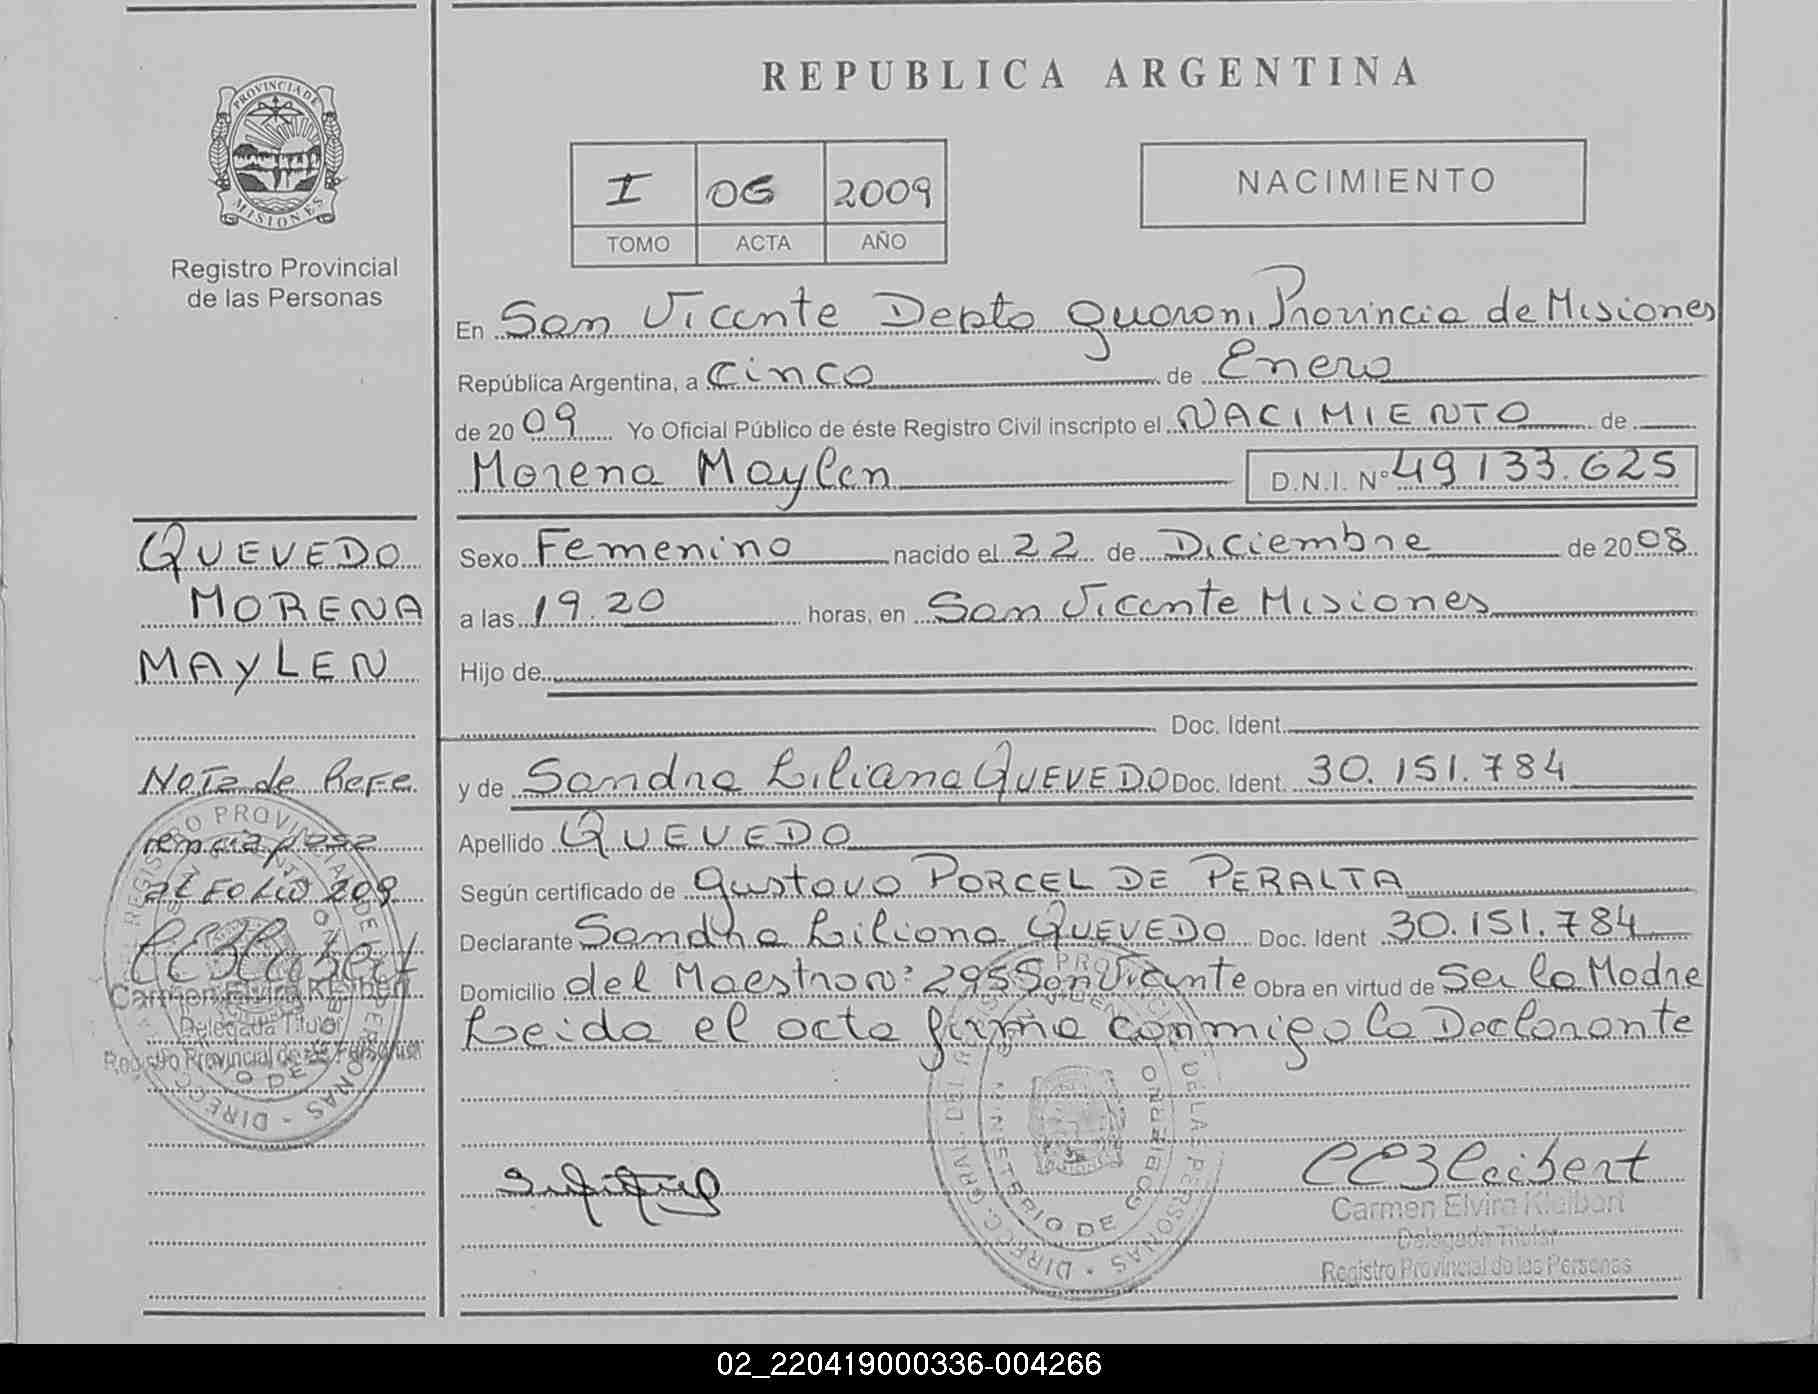 PROVINCIA DE
MISIONES
Registro Provincial
de las Personas
QUEVEDO
MORENA
MAYLEN
Nota de Refe
rencia pasa
al FOLIO 209
Carmen Elvira Kleibert
Delegada Titular
Registro Provincial de las Personas
REPUBLICA ARGENTINA
I 06 2009
TOMO ACTA AÑO
NACIMIENTO
En San Vicente Depto Guarani Provincia de Misiones
República Argentina, a cinco de Enero
de 2009 Yo Oficial Público de éste Registro Civil inscripto el NACIMIENTO de
Morena Maylen D.N.I. Nº 49133.625
Sexo Femenino nacido el 22 de Diciembre de 2008
a las 19.20 horas, en San Vicente Misiones
Hijo de
Doc. Ident.
y de Sandra Liliana QUEVEDO Doc. Ident. 30.151.784
Apellido QUEVEDO
Según certificado de Gustavo PORCEL DE PERALTA
Declarante Sandra Liliana QUEVEDO Doc. Ident 30.151.784
Domicilio del Maestro Nº 295 San Vicente Obra en virtud de Ser la Madre
Leida el acta firma conmigo la Declarante
Carmen Elvira Kleibert
Delegada Titular
Registro Provincial de las Personas
02_220419000336-004266